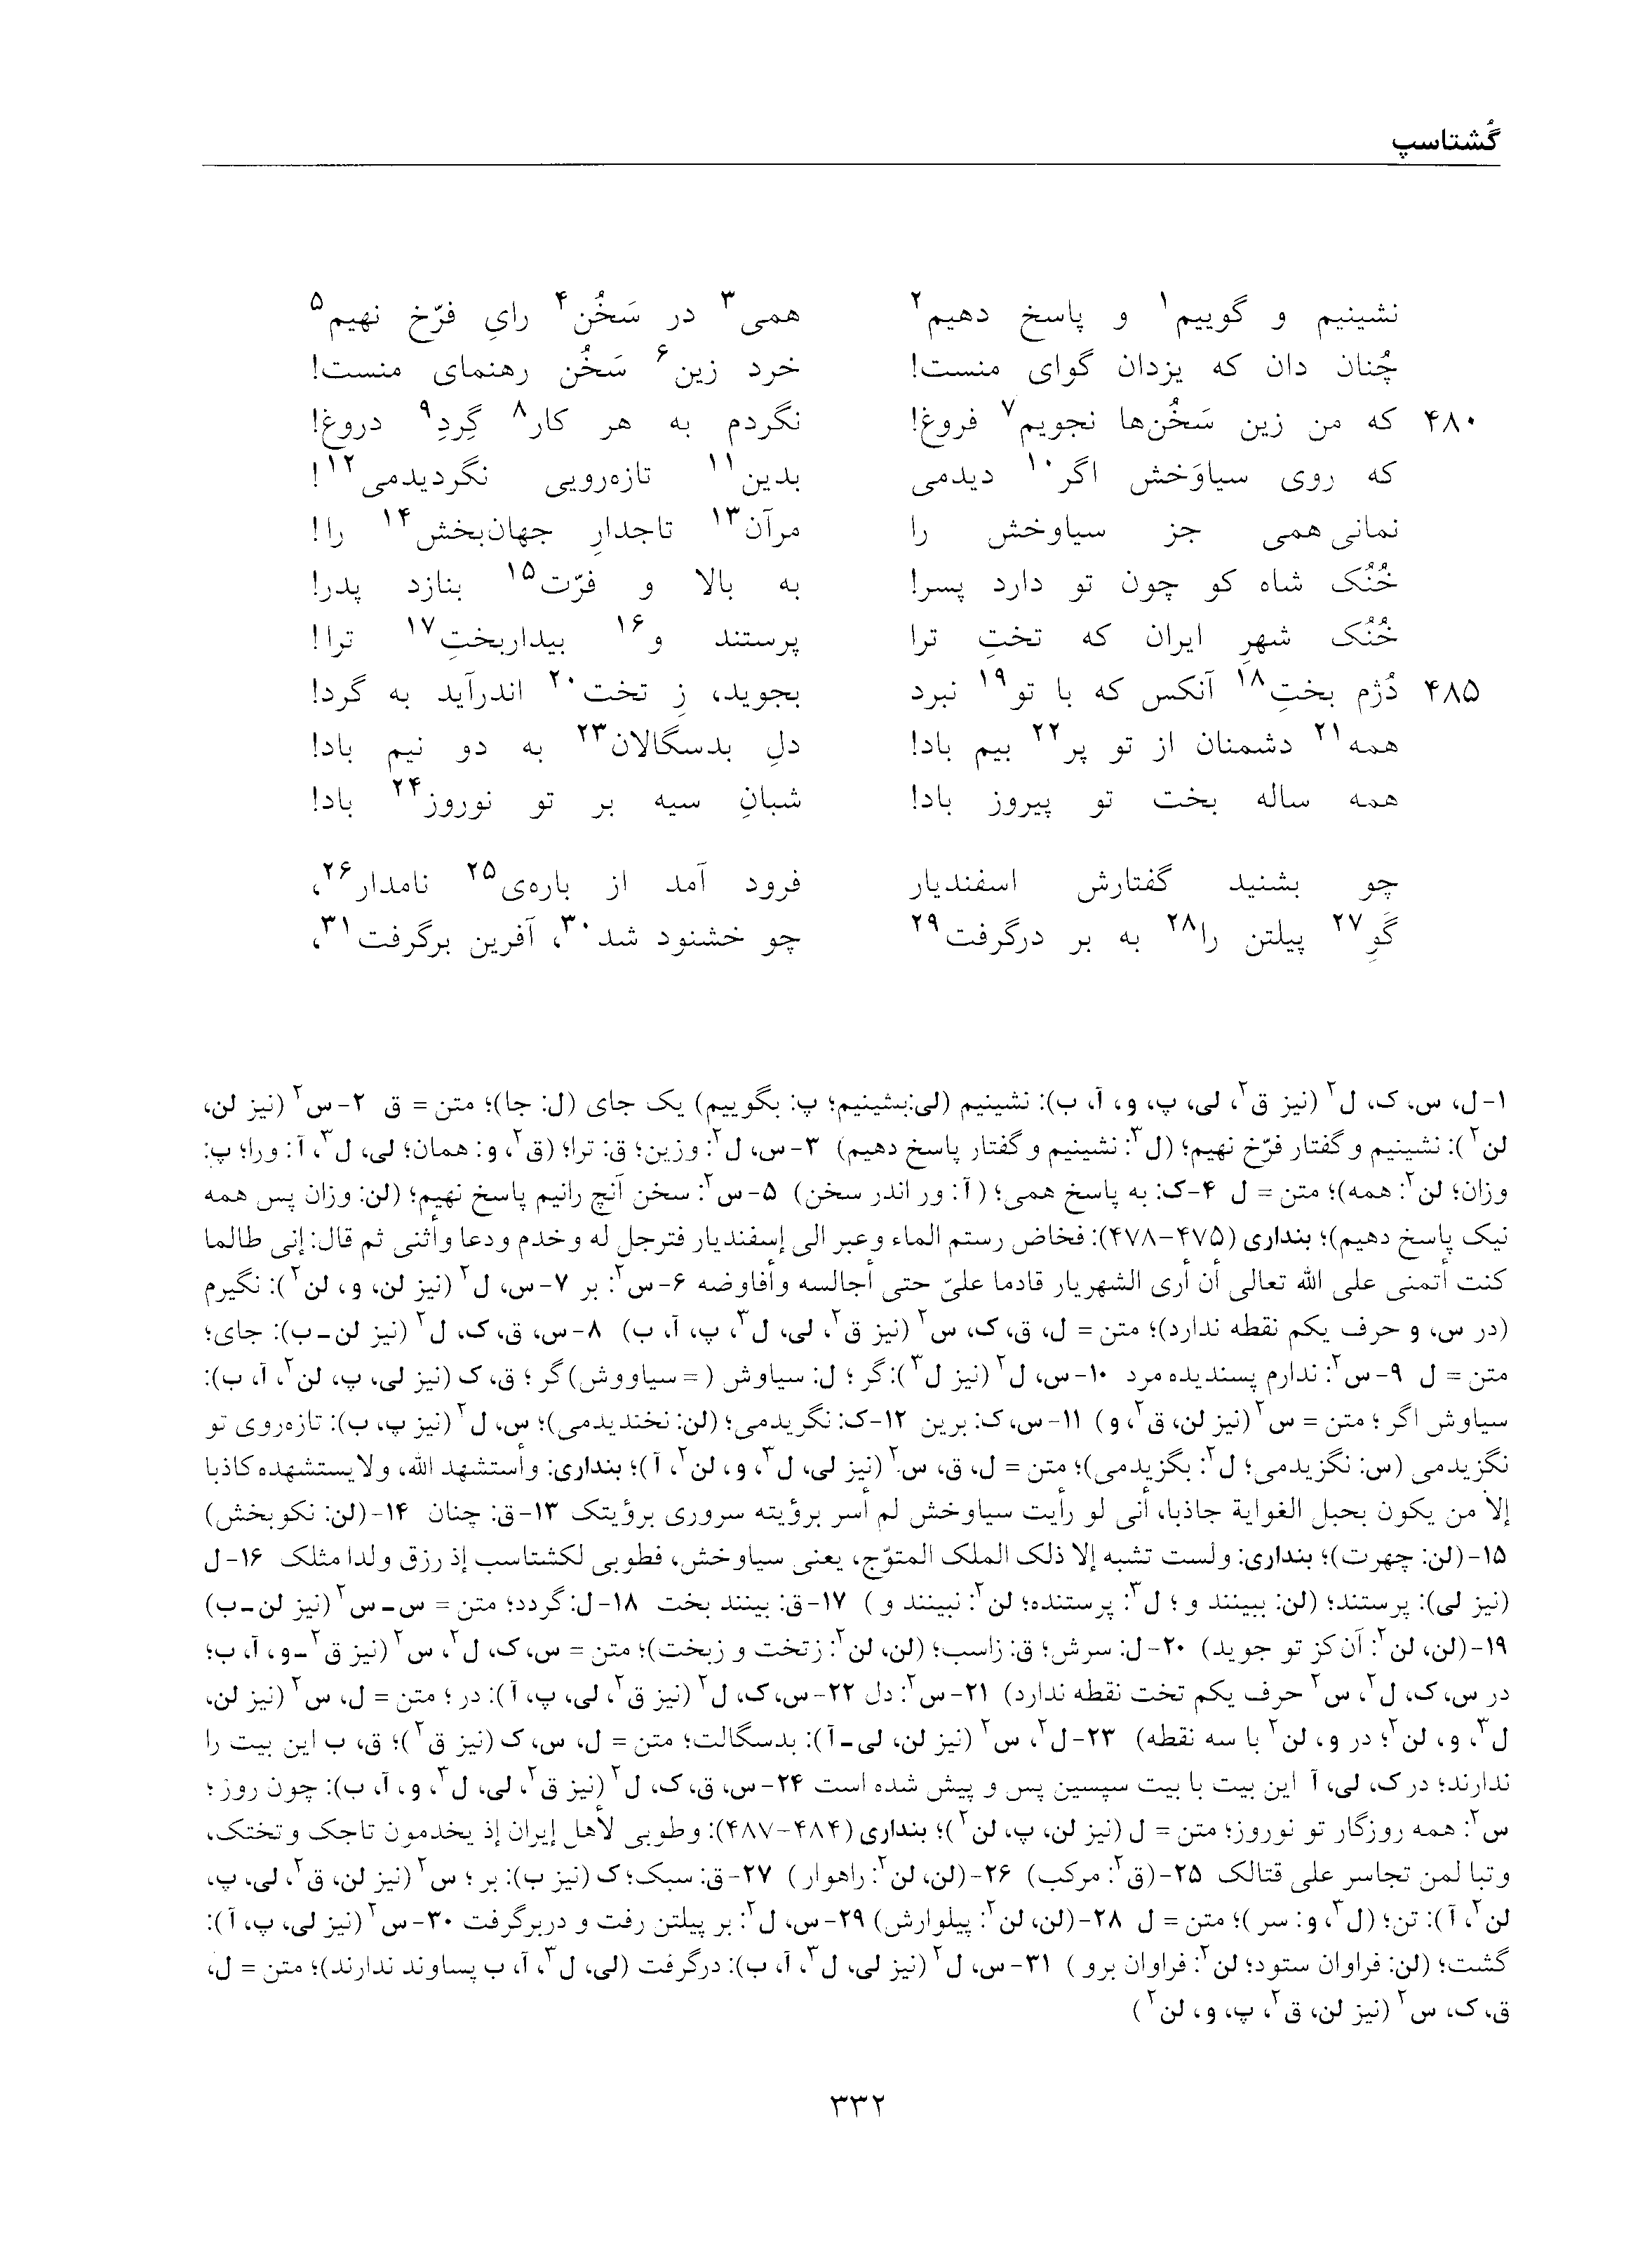 گُشتاسپ
نشینیم و گوییم۱ و پاسخ دهیم۲ همی۳ در سَخُن۴ رایِ فرّخ نهیم۵
چُنان دان که یزدان گوای منست! خرد زین۶ سَخُن رهنمای منست!
۴۸۰ که من زین سَخُن‌ها نجویم۷ فروغ! نگردم به هر کار۸ گِردِ۹ دروغ!
که روی سیاوَخش اگر۱۰ دیدمی بدین۱۱ تازه‌رویی نگردیدمی۱۲!
نمانی همی جز سیاوخش را مرآن۱۳ تاجدارِ جهان‌بخش۱۴ را!
خُنُک شاه کو چون تو دارد پسر! به بالا و فرّت۱۵ بنازد پدر!
خُنُک شهرِ ایران که تختِ ترا پرستند و۱۶ بیداربختِ۱۷ ترا!
۴۸۵ دُژم بختِ۱۸ آنکس که با تو۱۹ نبرد بجوید، زِ تخت۲۰ اندرآید به گرد!
همه۲۱ دشمنان از تو پر۲۲ بیم باد! دلِ بدسگالان۲۳ به دو نیم باد!
همه ساله بخت تو پیروز باد! شبانِ سیه بر تو نوروز۲۴ باد!
چو بشنید گفتارش اسفندیار فرود آمد از باره‌ی۲۵ نامدار۲۶،
گَوِ۲۷ پیلتن را۲۸ به بر درگرفت۲۹ چو خشنود شد۳۰، آفرین برگرفت۳۱،
۱-ل، س، ک، ل۲ (نیز ق۲، لی، پ، و، آ، ب): نشینیم (لی:بشینیم؛ پ: بگوییم) یک جای (ل: جا)؛ متن = ق ۲-س۲ (نیز لن،
لن۲): نشینیم و گفتار فرّخ نهیم؛ (ل۳: نشینیم و گفتار پاسخ دهیم) ۳-س، ل۲: وزین؛ ق: ترا؛ (ق۲، و: همان؛ لی، ل۳، آ: ورا؛ پ:
وزان؛ لن۲: همه)؛ متن = ل ۴-ک: به پاسخ همی؛ (آ: ور اندر سخن) ۵-س۲: سخن آنچ رانیم پاسخ نهیم؛ (لن: وزان پس همه
نیک پاسخ دهیم)؛ بنداری (۴۷۵-۴۷۸): فخاض رستم الماء وعبر الی إسفندیار فترجل له وخدم ودعا وأثنی ثم قال: إنی طالما
کنت أتمنی علی الله تعالی أن أری الشهریار قادما علیّ حتی أجالسه وأفاوضه ۶-س۲: بر ۷-س، ل۲ (نیز لن، و، لن۲): نگیرم
(در س، و حرف یکم نقطه ندارد)؛ متن = ل، ق، ک، س۲ (نیز ق۲، لی، ل۳، پ، آ، ب) ۸-س، ق، ک، ل۲ (نیز لن-ب): جای؛
متن = ل ۹-س۲: ندارم پسندیده مرد ۱۰-س، ل۲ (نیز ل۳): گر؛ ل: سیاوش (= سیاووش) گر؛ ق، ک (نیز لی، پ، لن۲، آ، ب):
سیاوش اگر؛ متن = س۲ (نیز لن، ق۲، و) ۱۱-س، ک: برین ۱۲-ک: نگریدمی؛ (لن: نخندیدمی)؛ س، ل۲ (نیز پ، ب): تازه‌روی تو
نگزیدمی (س: نگزیدمی؛ ل۲: بگزیدمی)؛ متن = ل، ق، س۲ (نیز لی، ل۳، و، لن۲، آ)؛ بنداری: وأستشهد الله، ولا یستشهده کاذبا
إلا من یکون بحبل الغوایة جاذبا، أنی لو رأیت سیاوخش لم أسر برؤیته سروری برؤیتک ۱۳-ق: چنان ۱۴-(لن: نکوبخش)
۱۵-(لن: چهرت)؛ بنداری: ولست تشبه إلا ذلک الملک المتوّج، یعنی سیاوخش، فطوبی لکشتاسب إذ رزق ولدا مثلک ۱۶-ل
(نیز لی): پرستند؛ (لن: ببینند و؛ ل۳: پرستنده؛ لن۲: نبینند و) ۱۷-ق: بینند بخت ۱۸-ل: گردد؛ متن = س-س۲ (نیز لن-ب)
۱۹-(لن، لن۲: آن کز تو جوید) ۲۰-ل: سرش؛ ق: زاسب؛ (لن، لن۲: زتخت و زبخت)؛ متن = س، ک، ل۲، س۲ (نیز ق۲-و، آ، ب؛
در س، ک، ل۲، س۲ حرف یکم تخت نقطه ندارد) ۲۱-س۲: دل ۲۲-س، ک، ل۲ (نیز ق۲، لی، پ، آ): در؛ متن = ل، س۲ (نیز لن،
ل۳، و، لن۲؛ در و، لن۲ با سه نقطه) ۲۳-ل۲، س۲ (نیز لن، لی-آ): بدسگالت؛ متن = ل، س، ک (نیز ق۲)؛ ق، ب این بیت را
ندارند؛ در ک، لی، آ این بیت با بیت سپسین پس و پیش شده است ۲۴-س، ق، ک، ل۲ (نیز ق۲، لی، ل۳، و، آ، ب): چون روز؛
س۲: همه روزگار تو نوروز؛ متن = ل (نیز لن، پ، لن۲)؛ بنداری (۴۸۴-۴۸۷): وطوبی لأهل إیران إذ یخدمون تاجک وتختک،
وتبا لمن تجاسر علی قتالک ۲۵-(ق۲: مرکب) ۲۶-(لن، لن۲: راهوار) ۲۷-ق: سبک؛ ک (نیز ب): بر؛ س۲ (نیز لن، ق۲، لی، پ،
لن۲، آ): تن؛ (ل۳، و: سر)؛ متن = ل ۲۸-(لن، لن۲: پیلوارش) ۲۹-س، ل۲: بر پیلتن رفت و دربرگرفت ۳۰-س۲ (نیز لی، پ، آ):
گشت؛ (لن: فراوان ستود؛ لن۲: فراوان برو) ۳۱-س، ل۲ (نیز لی، ل۳، آ، ب): درگرفت (لی، ل۳، آ، ب پساوند ندارند)؛ متن = ل،
ق، ک، س۲ (نیز لن، ق۲، پ، و، لن۲)
۳۳۲